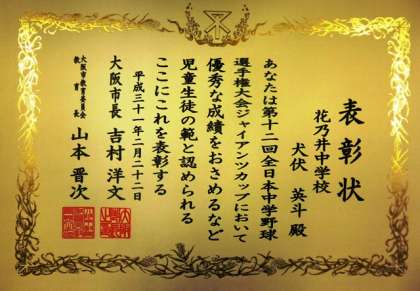 表彰状
花乃井中学校
犬伏 英斗 殿
あなたは第十二回全日本中学野球
選手権大会ジャイアンツカップにおいて
優秀な成績をおさめるなど
児童生徒の範と認められる
ここにこれを表彰する
平成三十一年二月二十二日
大阪市長 吉村 洋文
大阪市教育委員会
教育長 山本 晋次